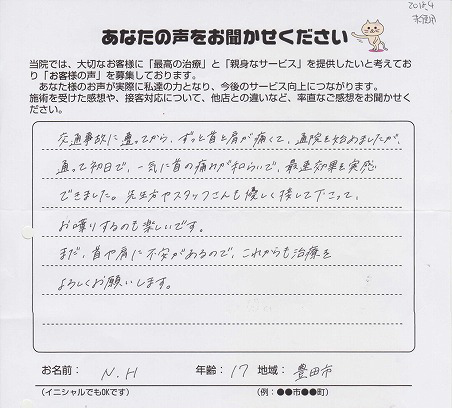 2018.4
あなたの声をお聞かせください
当院では、大切なお客様に「最高の治療」と「親身なサービス」を提供したいと考えてお
り「お客様の声」を募集しております。
あなた様のお声が実際に私達の力となり、今後のサービス向上につながります。
施術を受けた感想や、接客対応について、他店との違いなど、率直なご感想をお聞かせく
ださい。
交通事故に遭ってから、ずっと首と肩が痛くて、通院を始めましたが、
通って初日で、一気に首の痛みが和らいで、最速効果を実感
できました。先生方やスタッフさんも優しく接して下さって、
お喋りするのも楽しいです。
まだ、首や肩に不安があるので、これからも治療を
よろしくお願いします。
お名前： N.H 年齢： 17 地域： 豊田市
（イニシャルでもOKです） （例：●●市●●町）